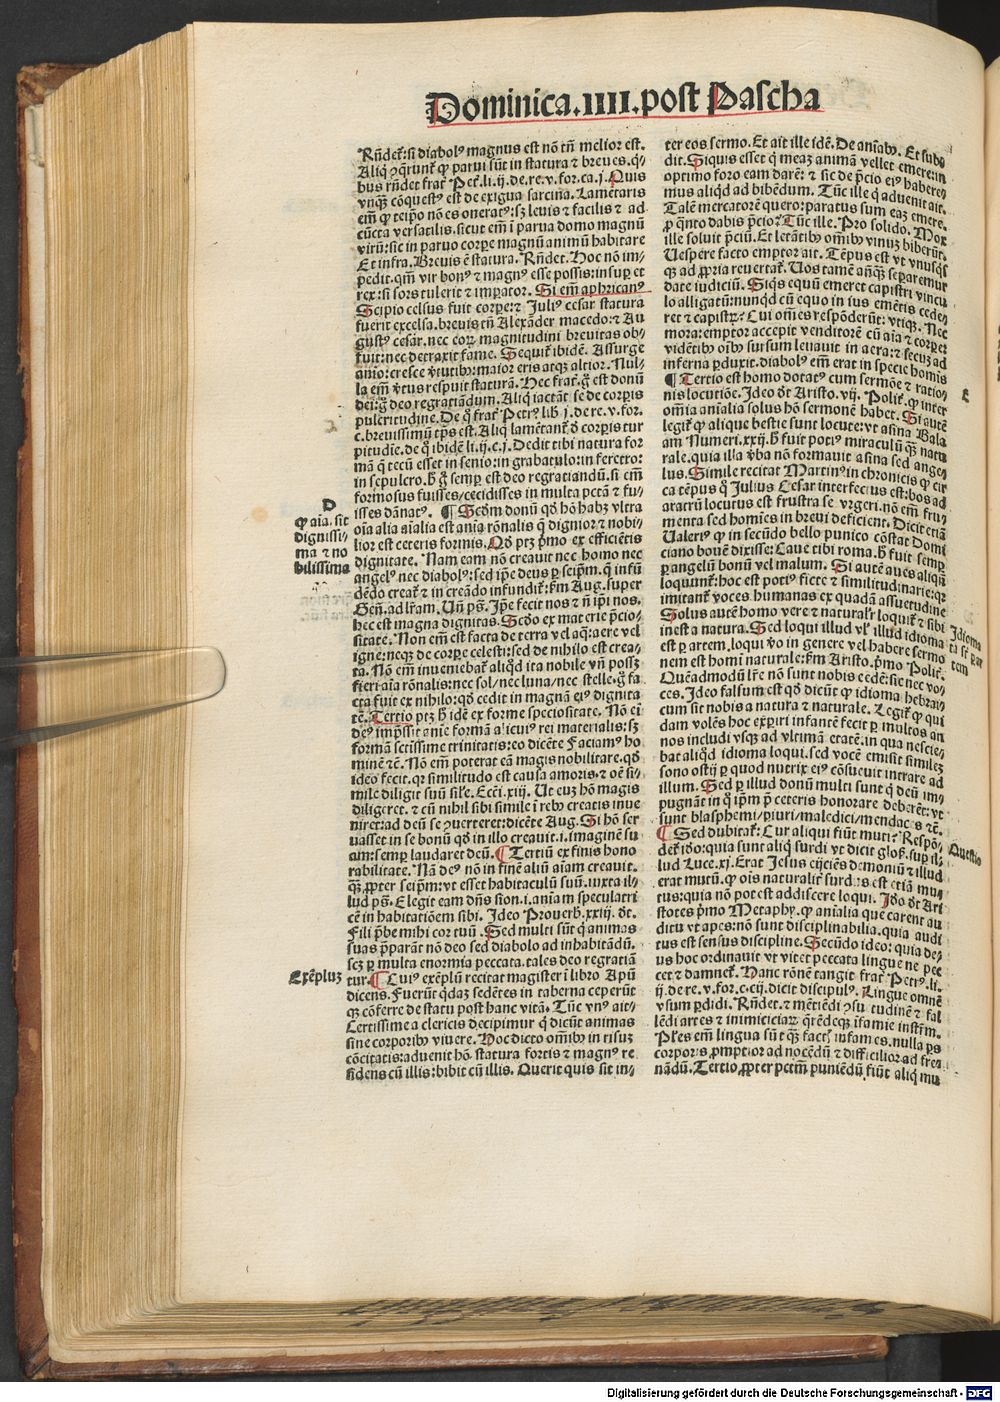 Dominica.IIII.post Pascha
Rñdet̃:si diabolꝰ magnus est nõ tñ melior est.
Aliq̃ ꝯq̃runt̃ ꝙ parui sũt in statura ⁊ breues.q̃-
bus rñdet frat̃ Petꝰ.li.ij.de.re.v.for.ca.j.Quis
vnq̃ꝫ cõquestꝰ est de exigua sarcina.Lamẽtaris
em̃ ꝙ teip̃o nõ es oneratꝰ:sꝫ leuis ⁊ facilis ⁊ ad
cũcta versatilis.sicut em̃ ĩ parua domo magnũ
virũ:sic in paruo corpe magnũ animũ habitare
Et infra.Breuis ẽ statura.Rñdet.Hoc nõ im-
pedit.qm̃ vir bonꝰ ⁊ magnꝰ esse possis:insuꝑ et
rex:si sors tulerit ⁊ imꝑator. Si em̃ aphricanꝰ
Scipio celsus fuit corpe:⁊ Juliꝰ cesar statura
fuerit excelsa.breuis tñ Alexãder macedo:⁊ Au
gustꝰ cesar.nec eoꝝ magnitudini breuitas ob-
fuit:nec detraxit fame. Sequit̃ ibidẽ. Assurge
animo:cresce v̓tutib:maior eris atqꝫ altior.Nul-
la em̃ v̓tus respuit staturã.Hec frat̃.g̃ est donũ
dei:g̃ deo regratiãdum.Aliq̃ iactãt se de corꝑis
pulcritudine.De q̃ frat̃ Petrꝰ lib̃.j.de.re.v.for.
c.breuissimũ tp̃s est.Aliq̃ lamẽtant̃ ð corꝑis tur
pitudĩe.de q̃ ibidẽ li.ij.c.j.Dedit tibi natura for
mã q̃ tecũ esset in senio:in grabatulo:in feretro:
in sepulcro.h̃ g̃ semꝑ est deo regratiandũ.si em̃
formosus fuisses/cecidisses in multa pctã ⁊ fu-
isses dãnatꝰ. ¶ Scdm donũ qð hõ habꝫ vltra
oĩa alia aĩalia est anĩa rõnalis q̃ dignior ⁊ nobi-
lior est ceteris formis.Qð ptꝫ p̃mo ex efficiẽtis
dignitate. Nam eam nõ creauit nec homo nec
angelꝰ nec diabolꝰ:sed ip̃e deus ꝑ seip̃m.q̃ infũ
dẽdo creat̃ ⁊ in creãdo infundit̃:ẜm Aug.super
Geñ.ad lr̃am. Vñ pꝫ. Ip̃e fecit nos ⁊ ñ ip̃i nos.
hec est magna dignitas.Scðo ex materie p̃cio-
sitate.Non em̃ est facta de terra vel aq̃:aere vel
igne:neqꝫ de corꝑe celesti:sed de nihilo est crea-
ta.Nõ em̃ inueniebat̃ aliq̃d ita nobile vñ possꝫ
fieri aĩa rõnalis:nec sol/nec luna/nec stelle.g̃ fa
cta fuit ex nihilo:qð cedit in magnã eiꝰ dignita
tẽ. Tertio ptꝫ h̃ idẽ ex forme speciositate. Nõ eĩ
deꝰ imp̃ssit anĩe formã alicuiꝰ rei materialis:sꝫ
formã sctissime trinitatis:eo dicẽte Faciamꝰ ho
minẽ ⁊c̃.Nõ em̃ poterat eã magis nobilitare.qð
ideo fecit.qꝛ similitudo est causa amoris.⁊ oẽ si-
mile diligit suũ sil̃e.Eccĩ.xiij. Ut cuꝫ hõ magis
diligeret.⁊ cũ nihil sibi simile ĩ rebꝰ creatis inue
niret:ad deũ se ꝯuerteret:dicẽte Aug.Si hõ ser
uasset in se bonũ qð in illo creauit.i.imaginẽ su
am:semꝑ laudaret deũ. ¶ Tertiũ ex finis hono
rabilitate. Nã deꝰ nõ in finẽ aliũ aĩam creauit.
qꝫ ꝓpter seip̃m:vt esset habitaculũ suũ.iuxta il-
lud pꝫ.Elegit eam dñs sion.i.aniam speculatri
cẽ in habitatiõem sibi. Ideo Prouerb.xxiij. ðr.
Fili p̃be mihi cor tuũ. Sed multi sũt q̃ animas
suas p̃parãt nõ deo sed diabolo ad inhabitãdũ.
scꝫ ꝑ multa enormia peccata.tales deo regratiã
tur. ¶ Cuiꝰ exẽplũ recitat magister ĩ libro Apũ
dicens.Fuerũt q̃daꝫ sedẽtes in taberna ceperũt
qꝫ cõferre de statu post hanc vitã.Tũc vnꝰ ait:
Certissime a clericis decipimur q̃ dicũt animas
sine corporibꝰ viuere.Hoc dicto om̃ibꝰ in risuꝫ
cõcitatis:aduenit hõ statura fortis ⁊ magnꝰ re
sidens cũ illis:bibit cũ illis. Querit quis sit in-
D
ꝙ aĩa.sit
dignissi-
ma ⁊ no
bilissima
Exẽpluꝫ
ter eos sermo.Et ait ille idẽ.De aniabꝰ. Et subi
dit.Siquis esset q̃ meaꝫ animã vellet emere:in
optimo foro eam darẽ:⁊ sic de p̃cio eiꝰ haberẽ
mus aliq̃d ad bibẽdum. Tũc ille q̃ aduenit ait.
Talẽ mercatorẽ quero:paratus sum eaꝫ emere.
ꝓ q̃nto dabis p̃cio? Tũc ille. Pro solido. Mox
ille soluit p̃ciũ.Et letãtibꝰ om̃ibꝰ vinuꝫ biberũt.
Uespere facto emptor ait. Tẽpus est vt vnusq̃s
qꝫ ad ꝓpria reuertat̃. Uos tamẽ añq̃ꝫ seꝑaremur
date iudiciũ. Siq̃s equũ emeret capistri vincu
lo alligatũ:nunqd cũ equo in ius emẽtis cede-
ret ⁊ capistꝝ? Cui om̃es respõderũt:vtiqꝫ. Nec
mora:emptor accepit venditorẽ cũ aĩa ⁊ corpe:
vidẽtibꝰ oĩbꝰ sursum leuauit in aera:⁊ secuꝫ ad
inferna ꝑduxit.diabolꝰ em̃ erat in specie homĩs
¶ Tertio est homo dotatꝰ cum sermõe ⁊ ratio-
nis locutiõe. Ideo ðt Aristo.vij. Polit̃.ꝙ inter
om̃ia anĩalia solus hõ sermonẽ habet. Si autẽ
legit̃ ꝙ alique bestie sunt locute:vt asina Bala
am Numeri.xxij.h̃ fuit potiꝰ miraculũ q̃ꝫ natu
rale.quia illa v̓ba nõ formauit asina sed ange-
lus.Simile recitat Martinꝰ in chronicis ꝙ cir
ca tẽpus q̃ Julius Cesar interfectus est:bos ad
aratrũ locutus est frustra se vrgeri.nõ em̃ fru-
menta sed homĩes in breui deficient.Dicit etiã
Ualeriꝰ ꝙ in secũdo bello punico cõstat Domi
ciano bouẽ dixisse:Caue tibi roma.h̃ fuit semꝑ
ꝑ angelũ bonũ vel malum. Si autẽ aues aliq̃ñ
loquunt̃:hoc est potiꝰ ficte ⁊ similitudinarie:qꝛ
imitant̃ voces humanas ex quadã assuetudine
Solus autẽ homo vere ⁊ naturalr̃ loquit̃ ⁊ sibi
inest a natura. Sed loqui illud vl̃ illud idioma
est ꝑ artem.loqui v̓o in genere vel habere sermo
nem est homĩ naturale:ẜm Aristo.p̃mo Polit̃.
Quẽadmodũ lr̃e nõ sunt nobis eẽdẽ:sic nec vo-
ces. Ideo falsum est qð dicũt ꝙ idioma hebrai-
cum sit nobis a natura ⁊ naturale. Legit̃ ꝙ qui
dam volẽs hoc exꝑiri infantẽ fecit ꝑ multos an
nos includi vsqꝫ ad vltimã etatẽ.in qua nescie-
bat aliq̃d idioma loqui.sed vocẽ emisit simileꝫ
sono ostij ꝑ quod nutrix eiꝰ cõsueuit intrare ad
illum. Sed ꝑ illud donũ multi sunt q̃ deũ im-
pugnãt in q̃ ip̃m p̃ ceteris honorare deberẽt:vt
sunt blasphemi/ꝑiuri/maledici/mendaces ⁊c̃.
¶ Sed dubitat̃:Cur aliqui fiũt muti? Respõ-
det̃.iðo:quia sunt aliq̃ surdi vt dicit gloẜ.suꝑ il-
lud Luce.xj.Erat Jesus eijciẽs demoniũ ⁊ illud
erat mutũ.ꝙ oĩs naturalit̃ surdus est etiã mu
tus:quia nõ pot est addiscere loqui. Iðo ðt Ari
stotes p̃mo Metaphy.ꝙ anĩalia que carent au
ditu vt apes:nõ sunt disciplinabilia.quia audi
tus est sensus discipline.Secũdo ideo:quia de-
us hoc ordinauit vt vitet peccata lingue ne pec
cet ⁊ damnet̃.Hanc rõnẽ tangit frat̃ Petrꝰ.li.
ij.de re.v.for.c.cij.dicit discipulꝰ. Lingue omnẽ
vsum ꝑdidi. Rñdet.⁊ mẽtiẽdi ꝯsuetudinẽ ⁊ fal
lẽdi artes ⁊ inimiciciaꝝ q̃rẽdeqꝫ ĩfamie instrm̃.
Pl̃es em̃ lingua sũt q̃ꝫ factꝭ infames.nulla ꝑs
corporis ꝓmptior ad nocẽdũ ⁊ difficilior ad fre
nãdũ.Tertio ꝓpter pctm̃ puniẽdũ fiũt aliq̃ mu
E
Idioma
tã sĩ ꝑ ar
tem
Questio
Digitalisierung gefördert durch die Deutsche Forschungsgemeinschaft - DFG